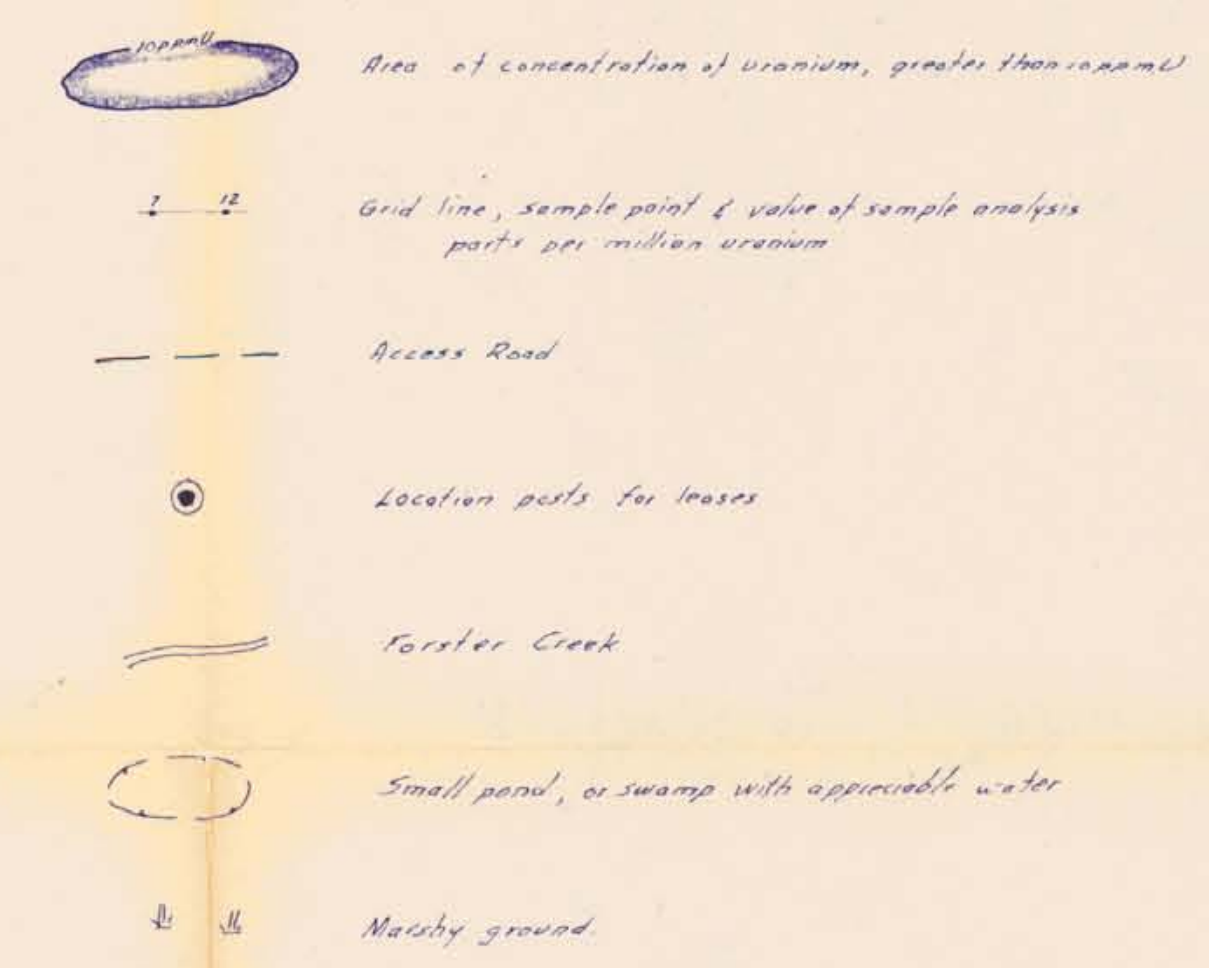 10ppmU
Area of concentration of uranium, greater than 10ppmU
7 12
Grid line, sample point & value of sample analysis
parts per million uranium
Access Road
Location posts for leases
Forster Creek
Small pond, or swamp with appreciable water
Marshy ground.